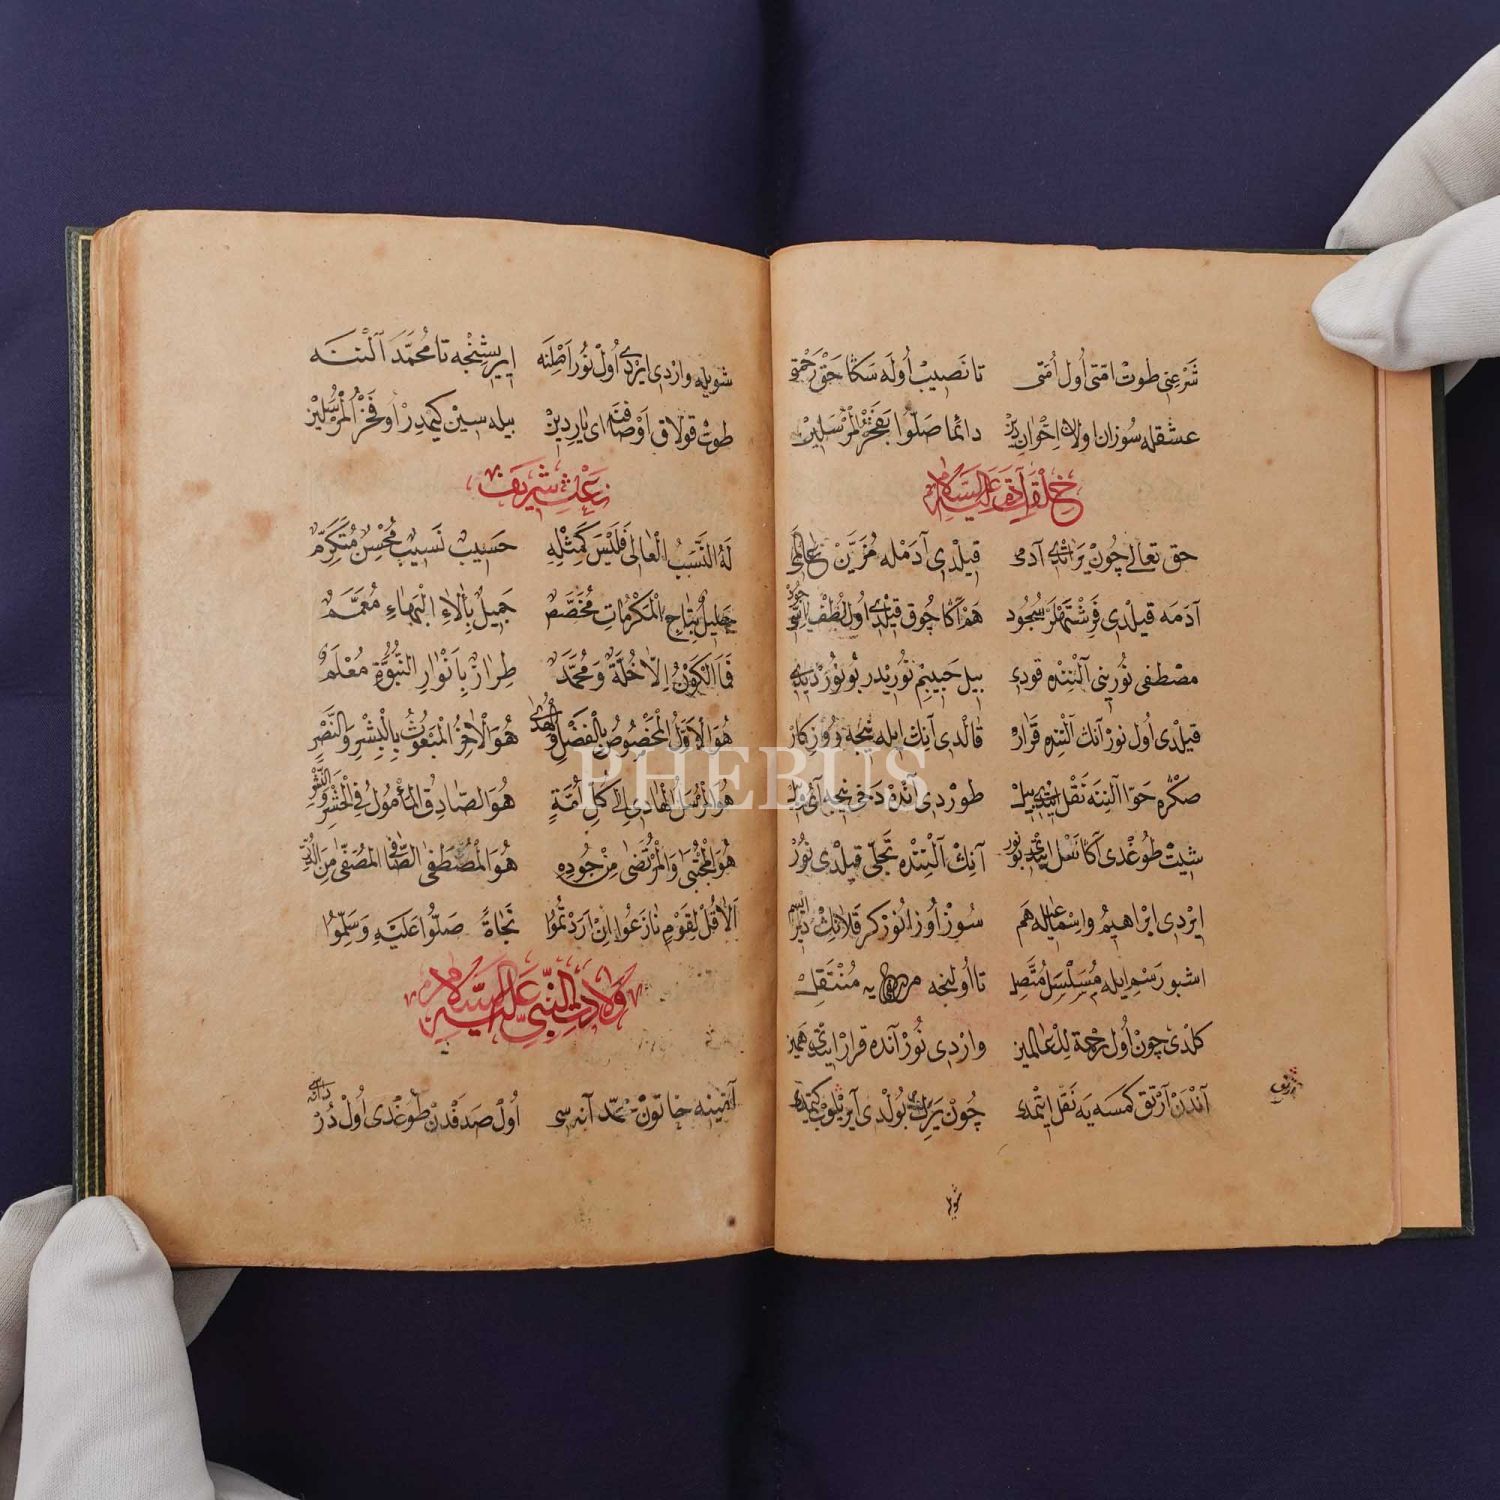 شرعنی طوت امتی اول امتی تا نصیب اوله سکا حق رحمتی
عشقله سوزان اولان اخوان دین دائما صلوا بفخر المرسلین
خلق آدم علیه السلام
حق تعالی چون یراتدی آدمی قیلدی آدمله مزین عالمی
آدمه قیلدی فرشتهلر سجود هم اکا چوق قیلدی اول لطف اسی جود
مصطفی نورینی آلننده قودی بیل حبیبم نوریدر بو نور دیدی
قیلدی اول نور آنك آلننده قرار قالدی آنك ایله نیجه روزکار
صکره حوا آلننه نقل ایتدی بیل طوردی آنده دخی نیجه آی و ییل
شیت طوغدی اکا نقل ایتدی نور آنك آلننده تجلی قیلدی نور
ایردی ابراهیم و اسماعیله هم سوز اوزانور کر قلانك دیر ایسم
اشبو رسم ایله مسلسل متصل تا اولنجه مصطفایه منتقل
کلدی چون اول رحمة للعالمین واردی نور آنده قرار ایتدی همین
آندن آرتق کمسه یه نقل ایتمدی چون یرین بولدی آیریلوب کتمدی
شویله
شویله واردی ایردی اول نور اصلنه ایریشنجه تا محمد آلننه
طوت قولاق اوصافنه ای یار دین بیله سین کیمدر او فخر المرسلین
نعت شریف
له النسب العالی فلیس کمثله حسیب نسیب محسن متکرم
جلیل بتاج المکرمات مخصص جمیل بالاء البهاء معمم
فما الکون الا خلة و محمد طراز بانوار النبوة معلم
هو الاول المخصوص بالفضل و الهدی هو الاخر المبعوث بالبشر و النصر
هو المرسل الهادی الی کل امة هو الصادق المأمول فی الحشر و النشر
هو المجتبی و المرتضی من جوده هو المصطفی الصافی المصفی من
الا قل لقوم نازعوا ان اردتموا نجاة صلوا علیه و سلموا
ولادت النبی علیه السلام
آمنه خاتون محمد آنه سی اول صدفدن طوغدی اول در دانه سی